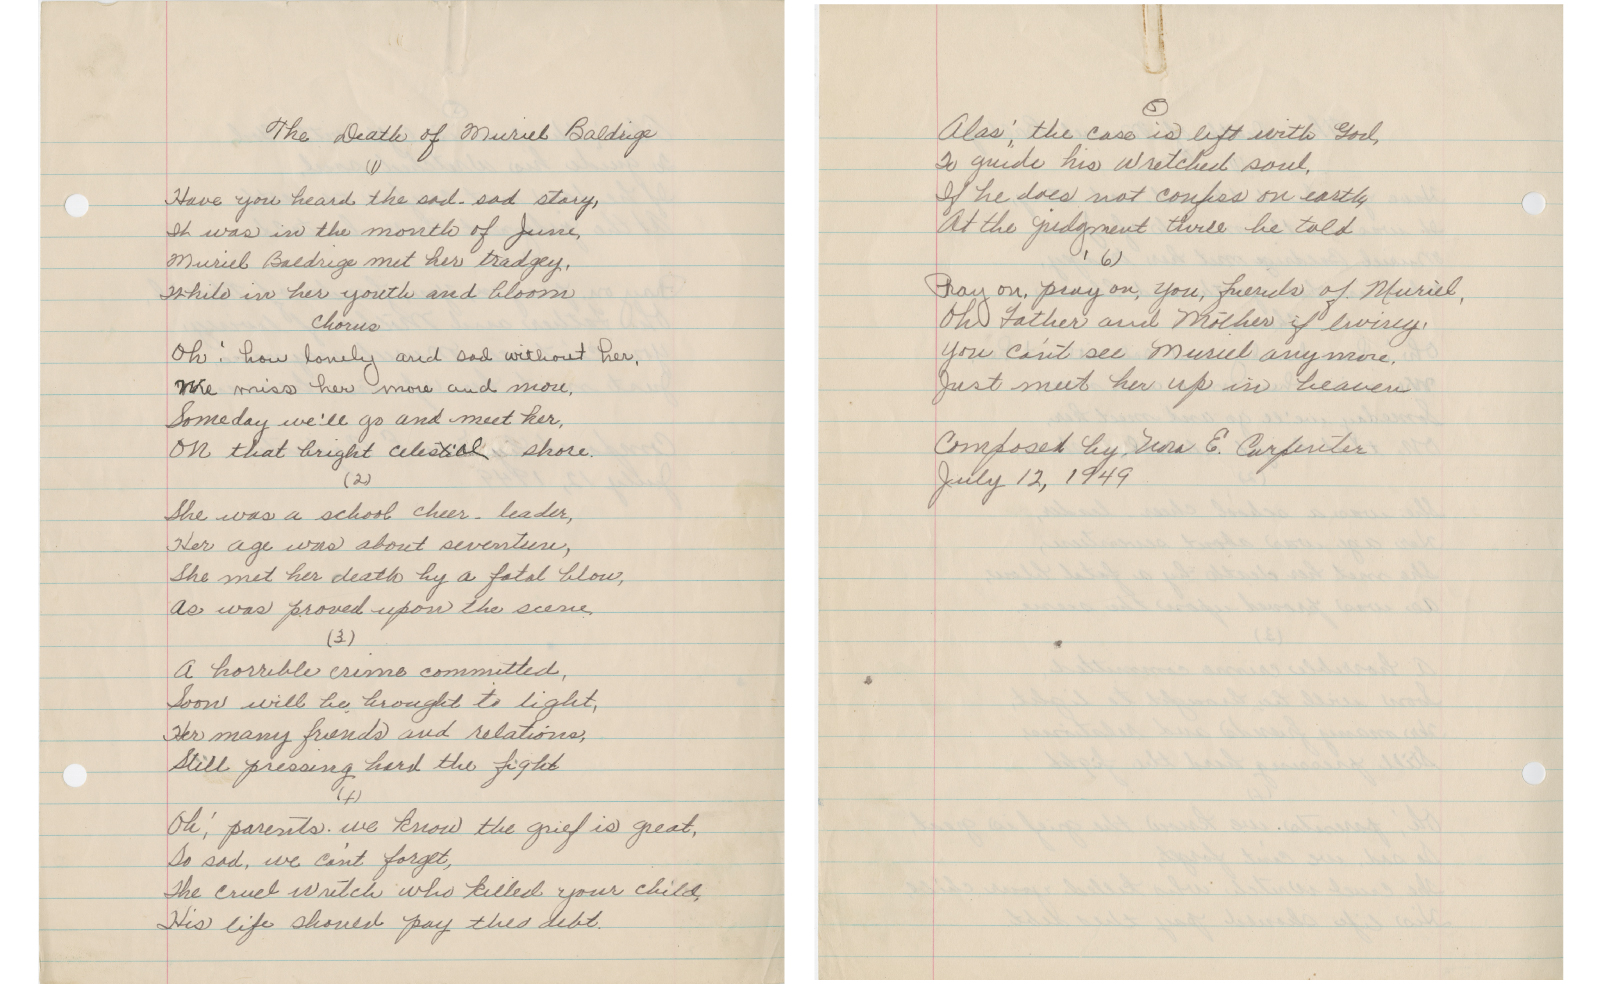 The Death of Muriel Baldrige
(1)
Have you heard the sad-sad story,
It was in the month of June,
Muriel Baldrige met her tradgey,
While in her youth and bloom
Chorus
Oh! how lonely and sad without her,
We miss her more and more,
Someday we'll go and meet her,
ON that bright celestial shore.
(2)
She was a school cheer-leader,
Her age was about seventeen,
She met her death by a fatal blow,
As was proved upon the scene.
(3)
A horrible crime committed,
Soon will be brought to light,
Her many friends and relations,
Still pressing hard the fight
(4)
Oh!, parents. we know the grief is great,
So sad, we can't forget,
The cruel wretch who killed your child,
His life should pay the debt.
(5)
Alas!, the case is left with God,
To guide his wretched soul,
If he does not confess on earth,
At the judgment twill be told
(6)
Pray on, pray on, you, friends of Muriel,
Oh Father and Mother if living,
You can't see Muriel anymore,
Just meet her up in heaven
Composed by, Nora E. Carpenter
July 12, 1949